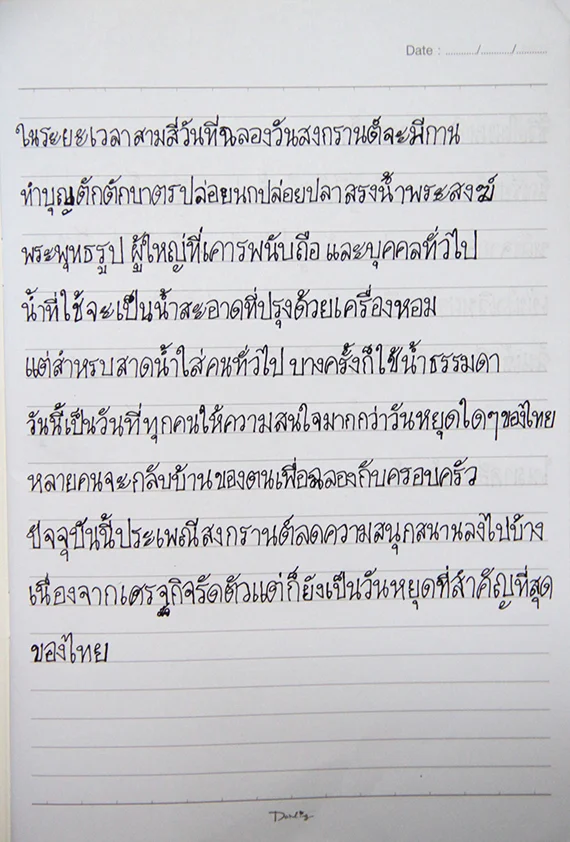 Date : ............/............/............
ในระยะเวลาสามสี่วันที่ฉลองวันสงกรานต์จะมีกาน
ทำบุญตักตักบาตรปล่อยนกปล่อยปลาสรงน้ำพระสงฆ์
พระพุทธรูป ผู้ใหญ่ที่เคารพนับถือ และบุคคลทั่วไป
น้ำที่ใช้จะเป็นน้ำสะอาดที่ปรุงด้วยเครื่องหอม
แต่สำหรบสาดน้ำใส่คนทั่วไป บางครั้งก็ใช้น้ำธรรมดา
วันนี้เป็นวันที่ทุกคนให้ความสนใจมากกว่าวันหยุดใดๆของไทย
หลายคนจะกลับบ้านของตนเพื่อฉลองกับครอบครัว
ปัจจุปันนี้ประเพณีสงกรานต์ลดความสนุกสนานลงไปบ้าง
เนื่องจากเศรฐกิจรัดตัวแต่ก็ยังเป็นวันหยุดที่สำคัญที่สุด
ของไทย